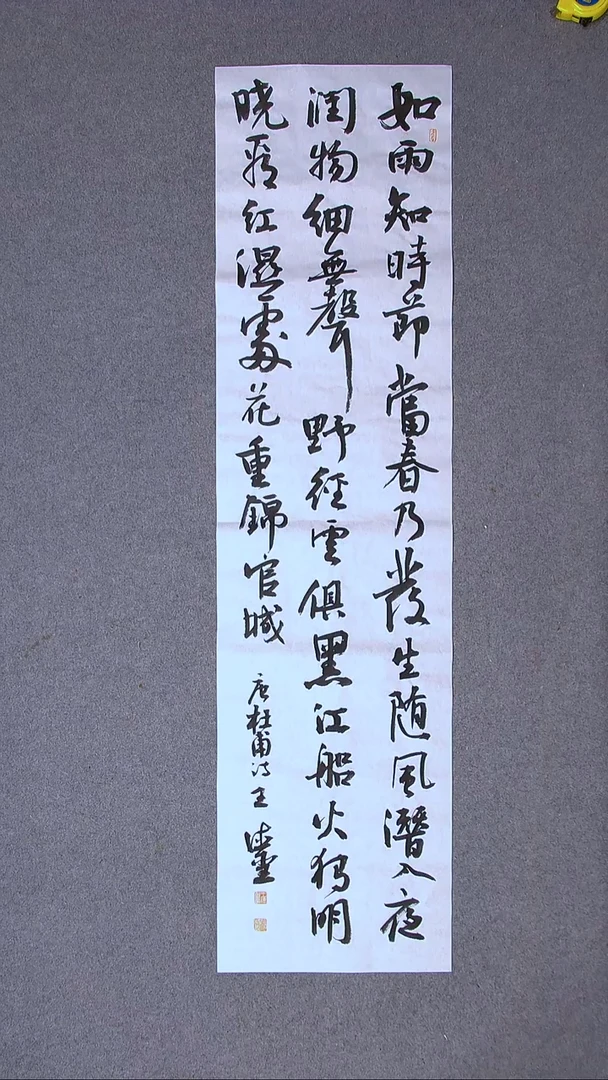 如雨知時節當春乃發生随風潛入夜
潤物細無聲野徑雲俱黑江船火独明
晓看紅濕處花重錦官城 唐杜甫诗王